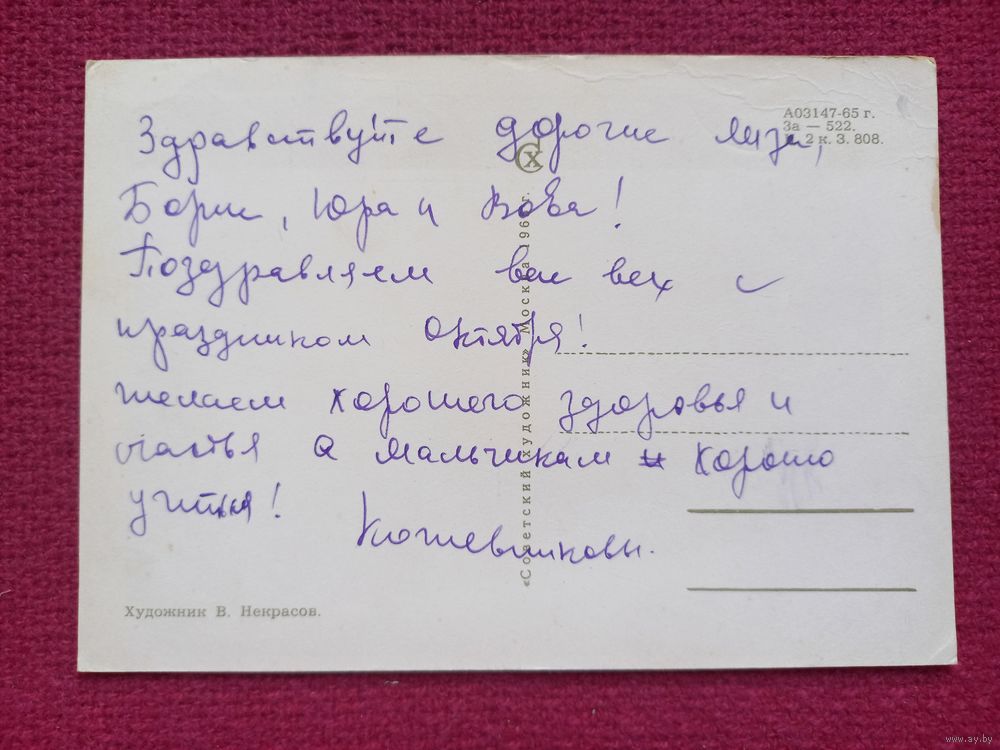 Здравствуйте дорогие Лиза,
Борис, Юра и Вова!
Поздравляем вас всех с
праздником Октября!
желаем хорошего здоровья и
счастья а мальчикам хорошо
учиться!
Кожевниковы.
А03147-65 г.
За — 522.
2 к. З. 808.
СХ
«Советский художник» Москва 196 г.
Художник В. Некрасов.
www.ay.by